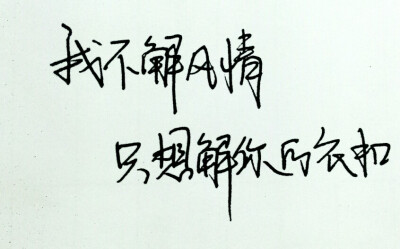 我不解风情
只想解你的衣扣